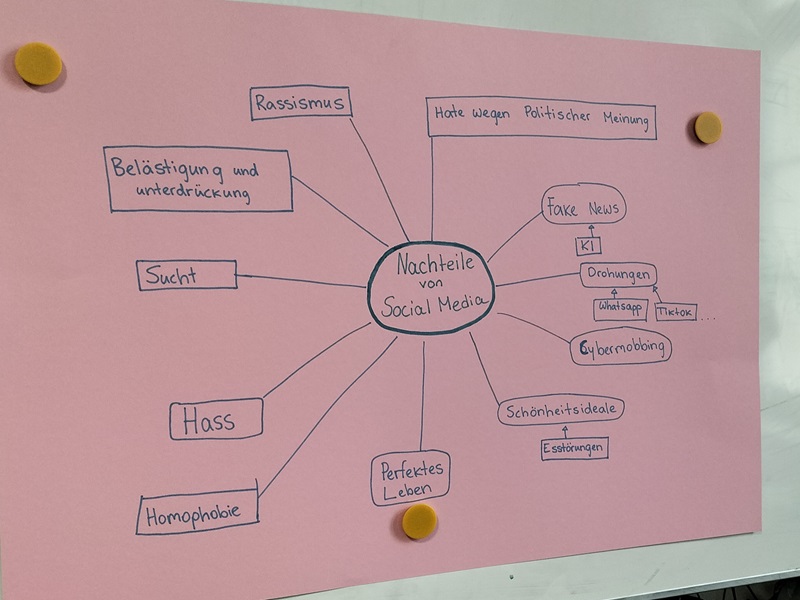 Rassismus
Hate wegen Politischer Meinung
Belästigung und
unterdrückung
Fake News
KI
Nachteile
von
Social Media
Sucht
Drohungen
Whatsapp
Tiktok ...
Cybermobbing
Hass
Schönheitsideale
Esstörungen
Perfektes
Leben
Homophobie